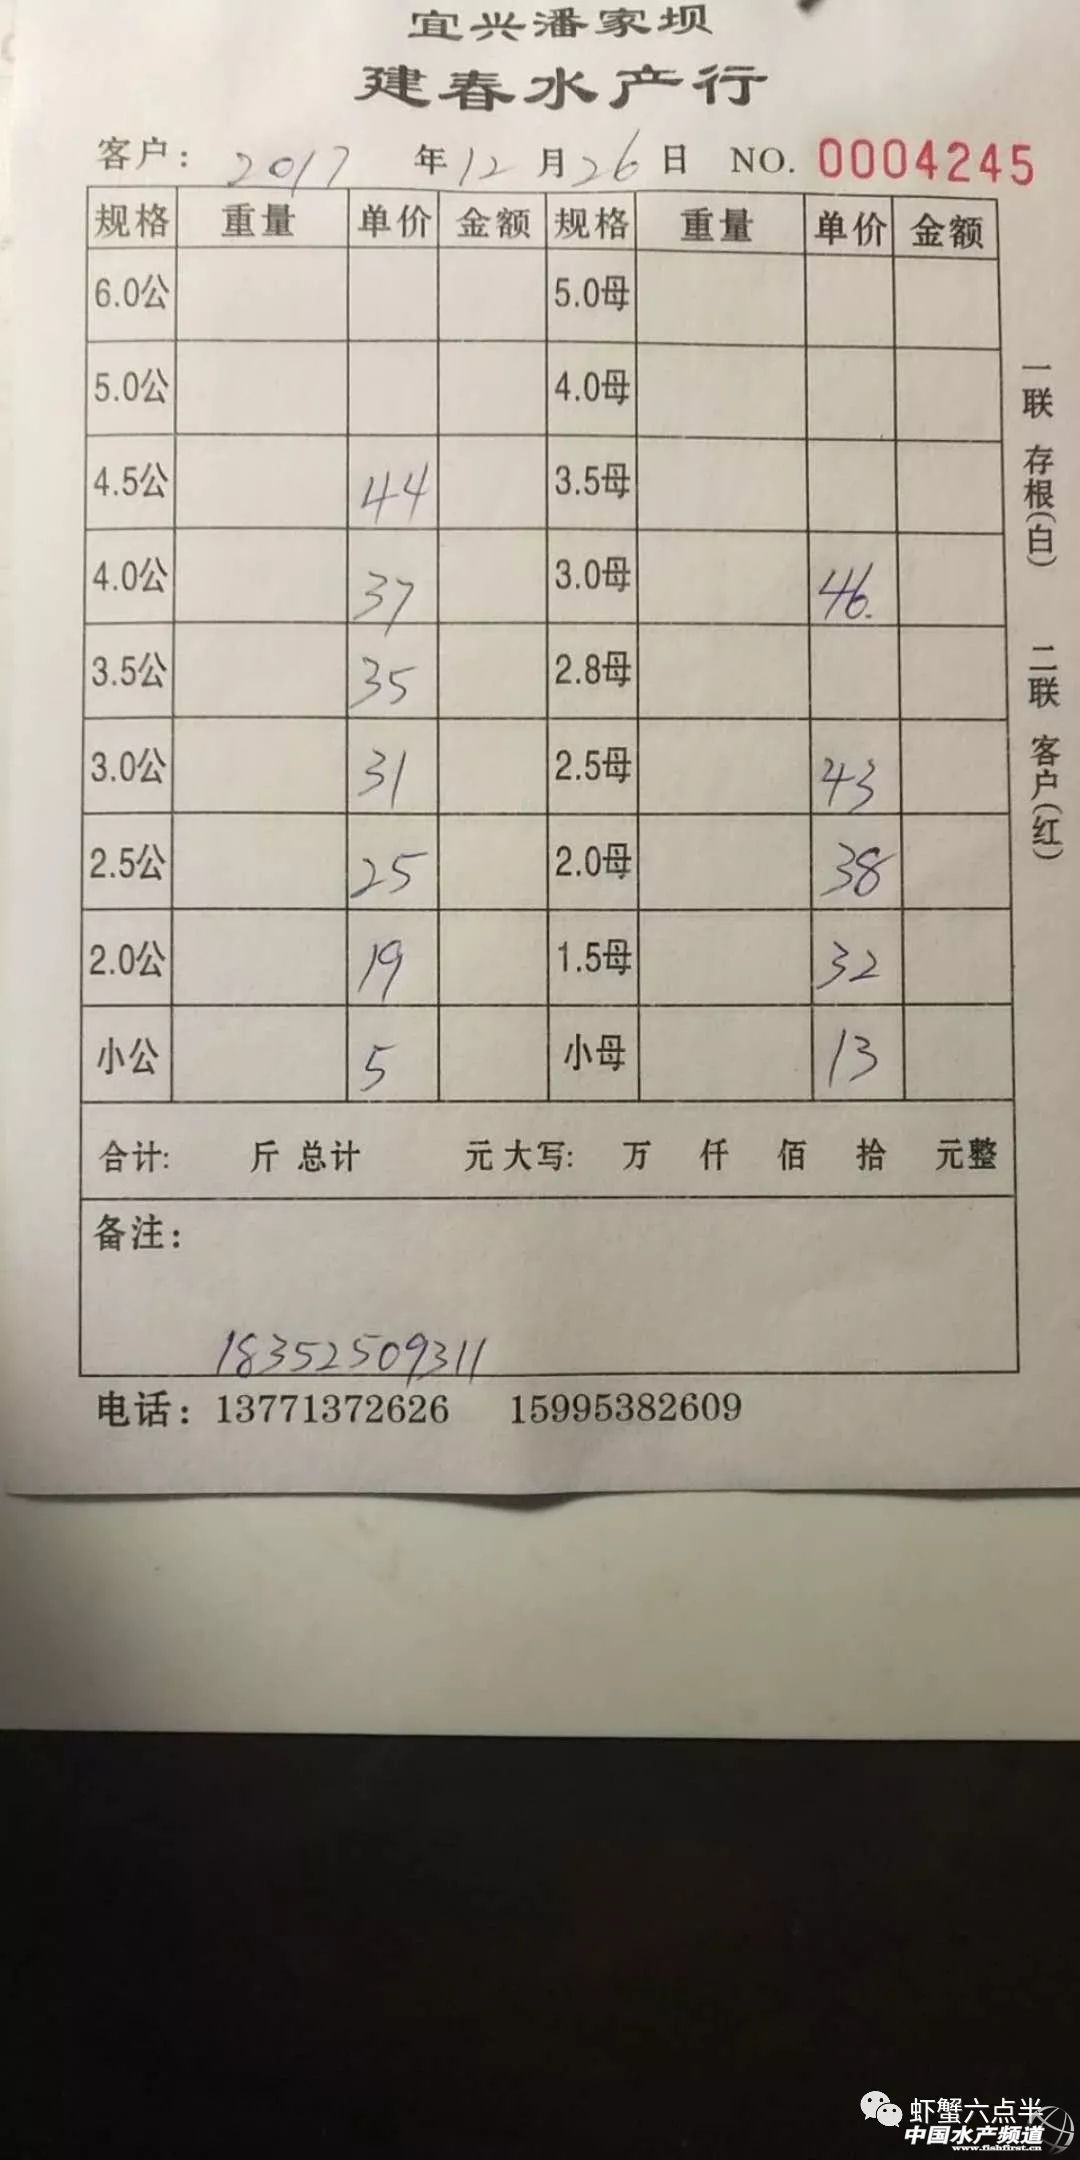 宜兴潘家坝
建春水产行
客户: 2017 年 12 月 26 日 NO. 0004245
规格 重量 单价 金额 规格 重量 单价 金额
6.0公 5.0母
5.0公 4.0母
4.5公 44 3.5母
4.0公 37 3.0母 46.
3.5公 35 2.8母
3.0公 31 2.5母 43
2.5公 25 2.0母 38
2.0公 19 1.5母 32
小公 5 小母 13
合计: 斤 总计 元 大写: 万 仟 佰 拾 元整
备注:
18352509311
电话: 13771372626 15995382609
一联 存根(白) 二联 客户(红)
虾蟹六点半
中国水产频道
www.fishfirst.cn